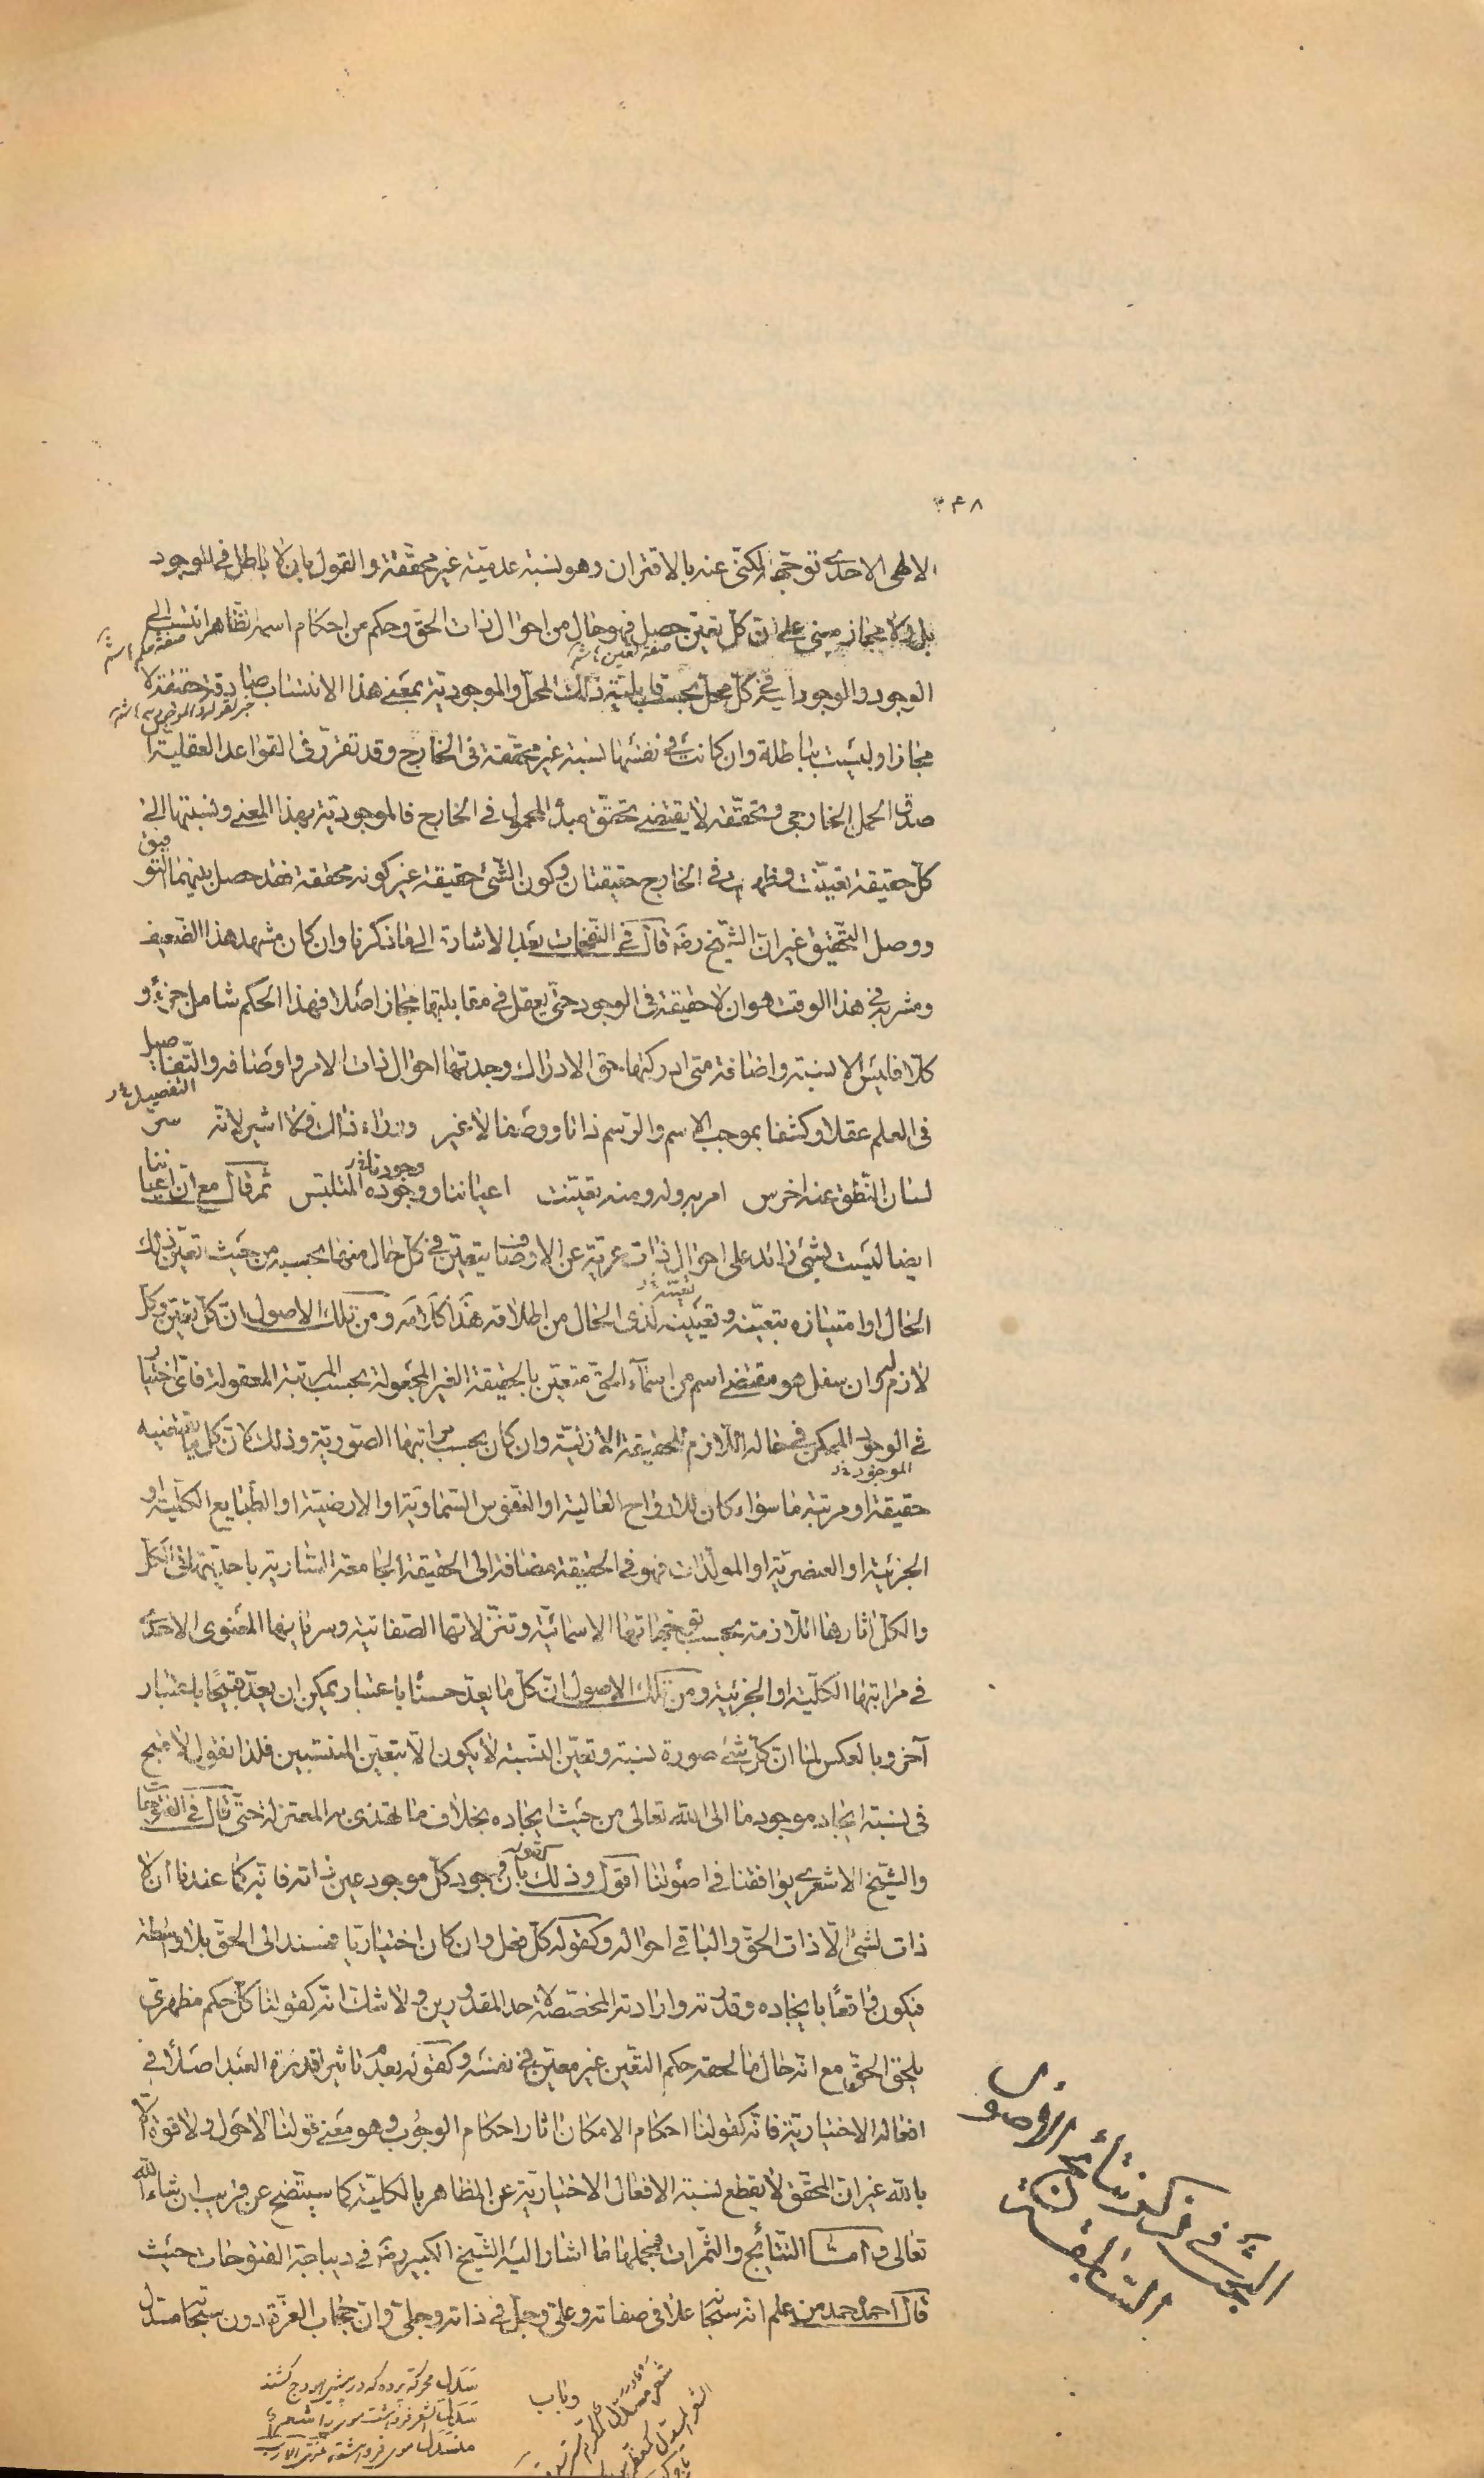 ٣٤٨
الالهى الاحدى توجهها المكنى عنه بالاقتران وهو نسبة عدمية غير محققة والقول بان لا باطل فى الوجود
بل ولا مجاز مبنى على ان كل تعين حصل فهو حال من احوال ذات الحق وحكم من احكام اسمه الظاهر انتسب الى
الوجود والوجود فى كل محل بحسب قابلية ذلك المحل والموجودية بمعنى هذا الانتساب صادقة حقيقة لا
مجازا وليست بباطلة وان كانت فى نفسها نسبة غير محققة فى الخارج وقد تقرر فى القواعد العقلية ان
صدق الحمل الخارجى وتحققه لا يقتضى تحقق مبدأ المحمول فى الخارج فالموجودية بهذا المعنى ونسبتها الى
كل حقيقة تعينت وظهرت فى الخارج حقيقتان وكون الشئ حقيقة غير كونه محققة فقد حصل بينهما التوفيق
ووصل التحقيق غير ان الشيخ رضه قال فى النفحات بعد الاشارة الى ما ذكرنا وان كان مشهد هذا الضعيف
ومشربه فى هذا الوقت هو ان لا حقيقة فى الوجود حتى يعقل فى مقابلتها مجاز اصلا فهذا الحكم شامل جزءا و
كلا فليس الا نسبة واضافة متى ادركتها حق الادراك وجدتها احوال ذات الامر واوصافه والتفاصيل
فى العلم عقلا وكشفا بموجب الاسم والرسم ذاتا ووصفا لا غير وراء ذلك فلا اشير لانه سر
لسان النطق عنه اخرس امر به وله ومنه تعينت اعياننا ووجوده المتلبس ثم قال مع ان اعياننا
ايضا ليست بشئ زائد على احوال ذات عرية عن الاوصاف يتعين فى كل حال منها بحسبه من حيث تعين ذلك
الحال او امتيازه بتعينه وتعينه لذى الحال من اطلاقه هذا كلامه ومن تلك الاصول ان كل تعين وكل
لازم له وان سفل هو مقتضى اسم من اسماء الحق متعين بالحقيقة الغير المجعولة بحسب المرتبة المعقولة فاى اختيار
فى الوجود الممكن فى حاله اللازم للحقيقة الازلية وان كان بحسب مراتبها الصورية وذلك لان كل ما تقتضيه
حقيقة او مرتبة ما سواء كان للارواح العالية او النفوس السماوية او الارضية او الطبايع الكلية او
الجزئية او العنصرية او المولدات فهو فى الحقيقة مضافة الى الحقيقة الجامعة السارية باحديتها فى الكل
والكل اثارها اللازمة بحسب توجهاتها الاسمائية وتنزلاتها الصفاتية وسريانها المعنوى الاحدى
فى مراتبها الكلية او الجزئية ومن تلك الاصول ان كل ما يعد حسنا باعتبار يمكن ان يعد قبيحا باعتبار
آخر وبالعكس لما ان كل شئ صورة نسبة وتعين النسبة لا يكون الا بتعين المنتسبين فلذا نقول لا قبح
فى نسبة ايجاد موجود ما الى الله تعالى من حيث ايجاده بخلاف ما يهتدى به المعتزلة حتى قال فى الفتوحات
والشيخ الاشعرى يوافقنا فى اصولنا اقول وذلك كقوله بان وجود كل موجود عين ذاته فانه كما عندنا ان لا
ذات لشئ الا ذات الحق والباقى احواله وكقوله كل فعل وان كان اختياريا فمستند الى الحق بلا واسطة
فيكون واقعا بايجاده وقدرته وارادته المخصصة لاحد المقدورين ولا شك انه كقولنا كل حكم مظهرى
يلحق الحق مع انه حال ما لحقه حكم التعين غير معين فى نفسه وكقوله بعدم تاثير لقدرة العبد اصلا فى
افعاله الاختيارية فانه كقولنا احكام الامكان اثار احكام الوجوب وهو معنى قولنا لا حول ولا قوة الا
بالله غير ان المحقق لا يقطع نسبة الافعال الاختيارية عن المظاهر بالكلية كما سيتضح عن قريب ان شاء الله
تعالى واما النتائج والثمرات فمجملها ما اشار اليه الشيخ الكبير رضه فى ديباجة الفتوحات حيث
قال احمده حمد من علم انه سبحانه علا فى صفاته وعلى وجل فى ذاته وجلى وان حجاب العزة دون سبحانه مسدل
صفة تعين
صفة حكم
وجوده
تعينه
الموجود
التفصيل
فى ذكر نتائج الاصول
السابقة